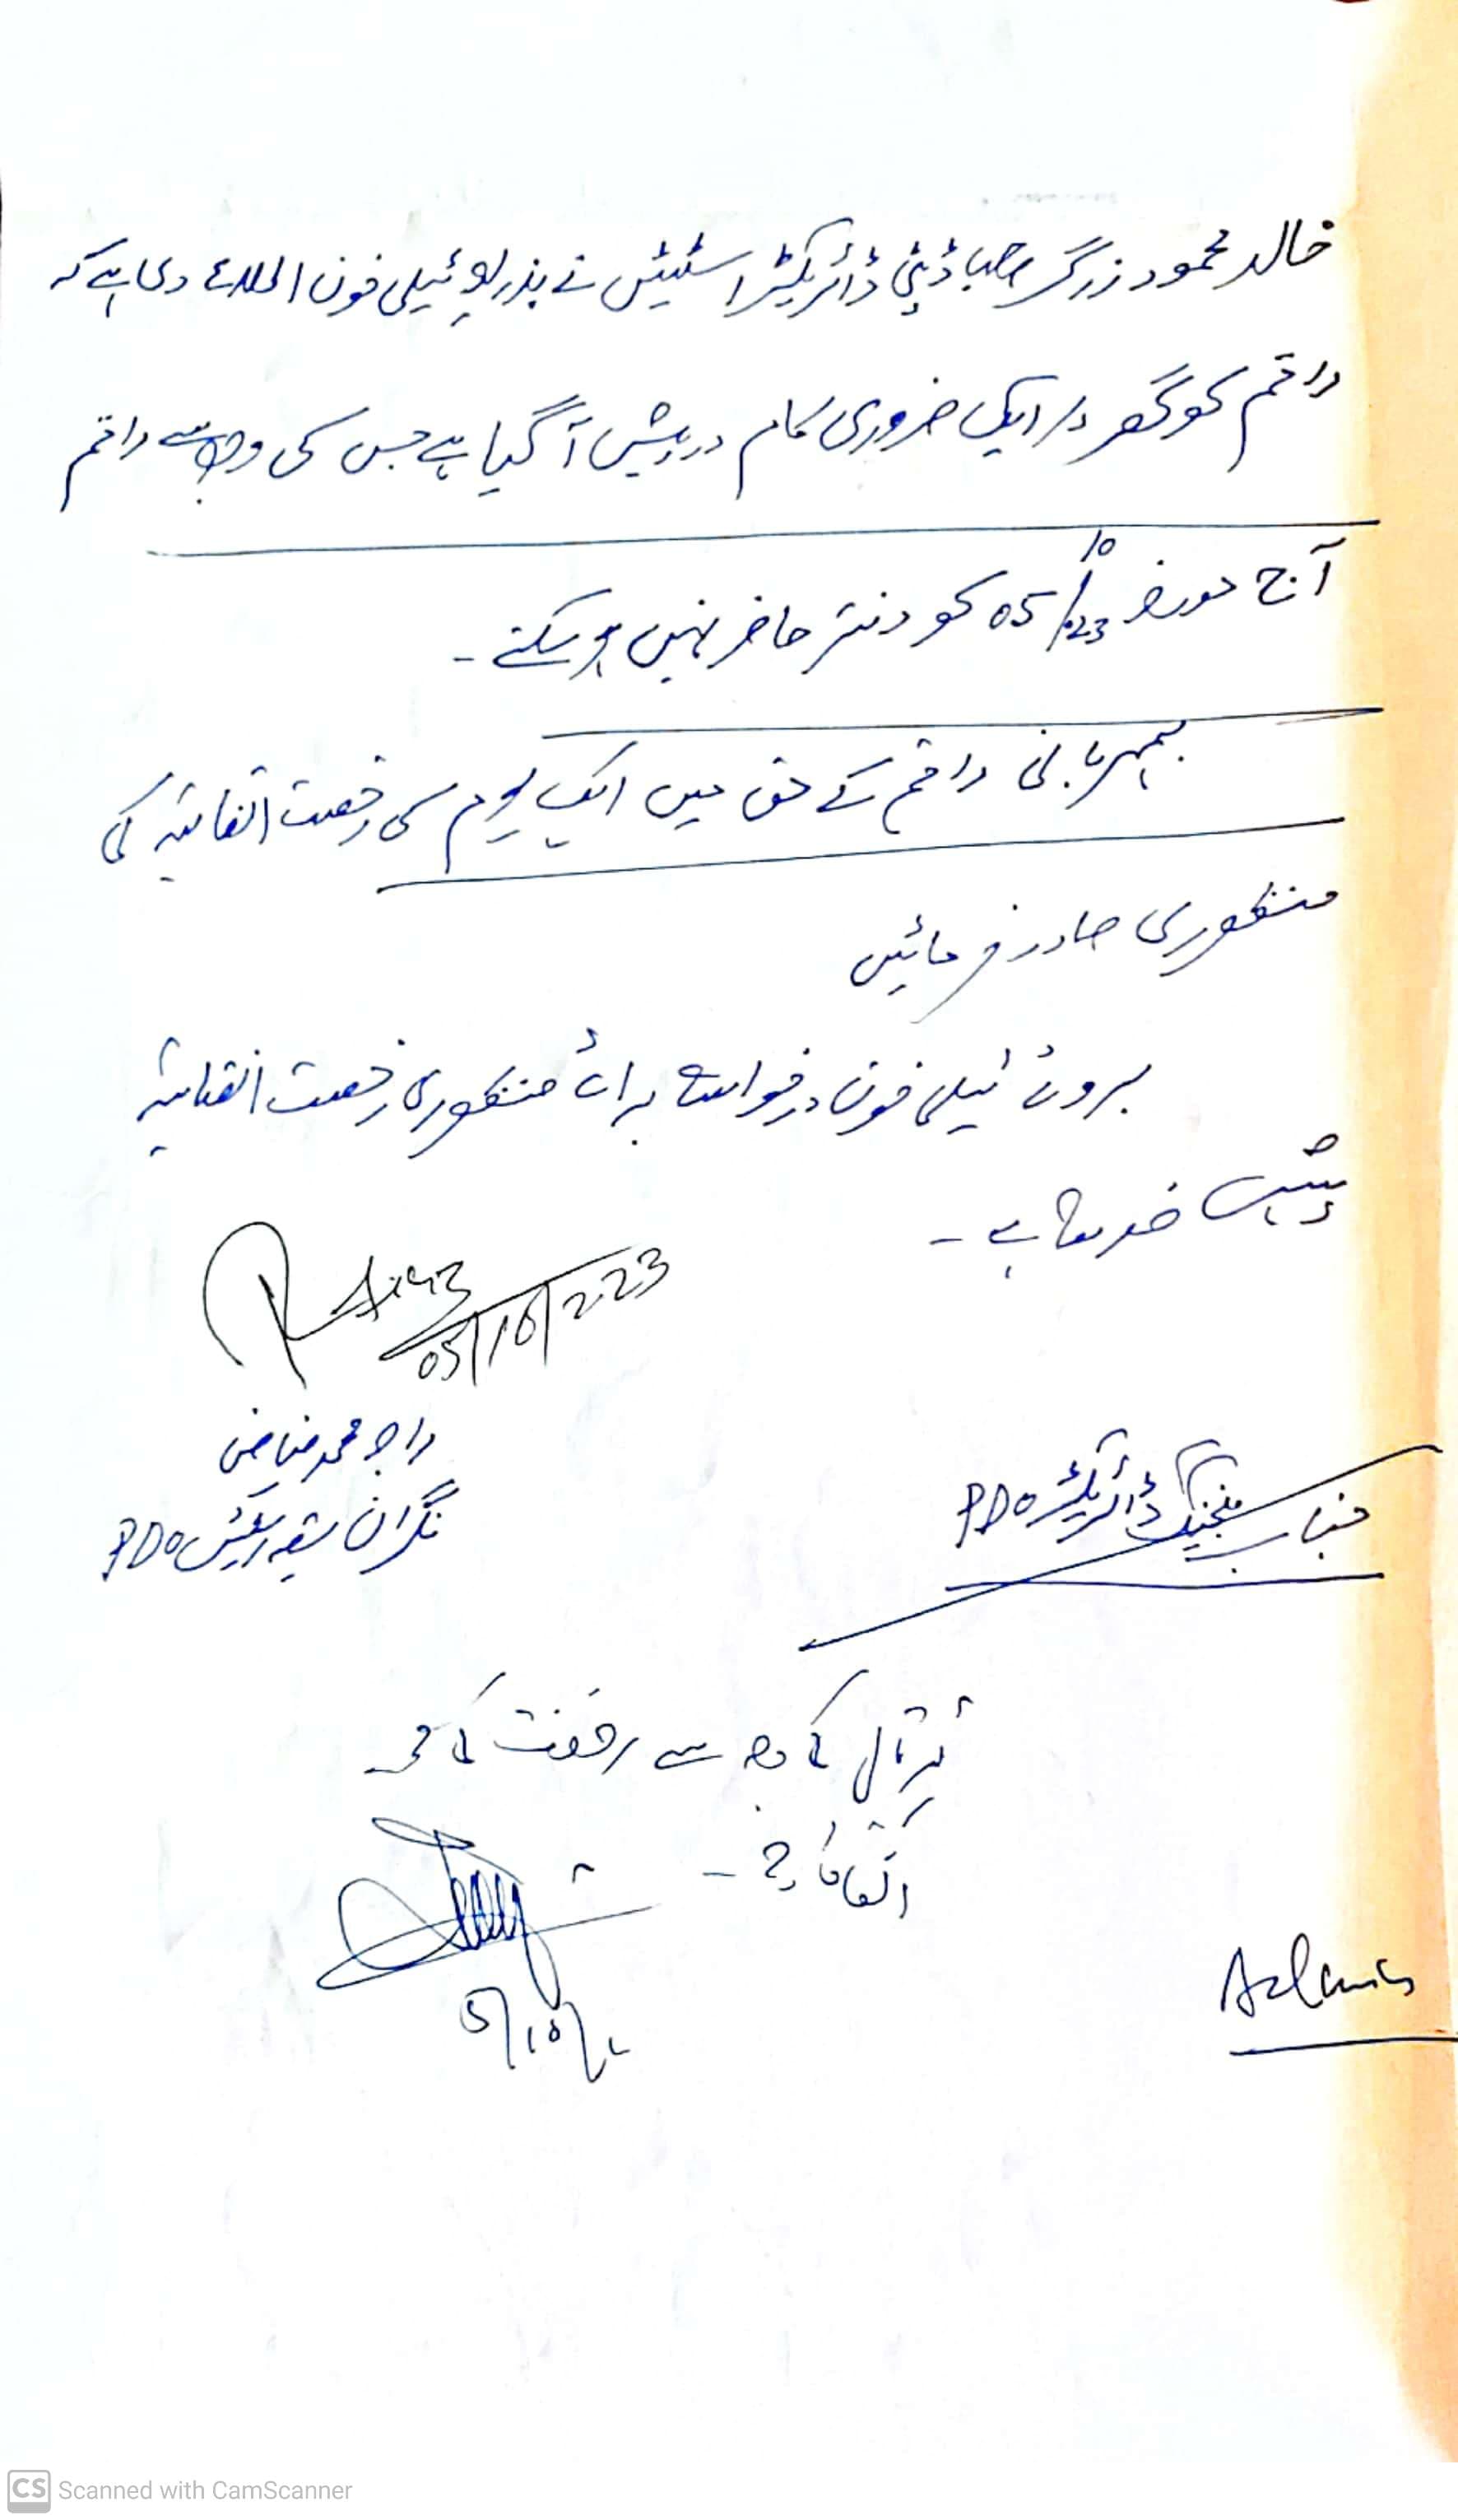 خالد محمود زرگر صاحب ڈپٹی ڈائریکٹر اسٹیٹس نے بذریعہ ٹیلی فون اطلاع دی ہے کہ
راقم کو گھر پر ایک ضروری کام درپیش آ گیا ہے جس کی وجہ سے راقم
آج مورخہ 05/10/023 کو دفتر حاضر نہیں ہو سکتے ۔
بمہربانی راقم کے حق میں ایک یوم کی رخصت اتفاقیہ کی
منظوری صادر فرمائیں
بروئے ٹیلی فون درخواست برائے منظوری رخصت اتفاقیہ
پیش خدمت ہے ۔
05/10/2023
راجہ محمد فیاض
نگران شعبہ اسٹیٹس PDO
جناب مینجنگ ڈائریکٹر PDO
ہڑتال کی وجہ سے رخصت کی
5/10/
Admin
Scanned with CamScanner